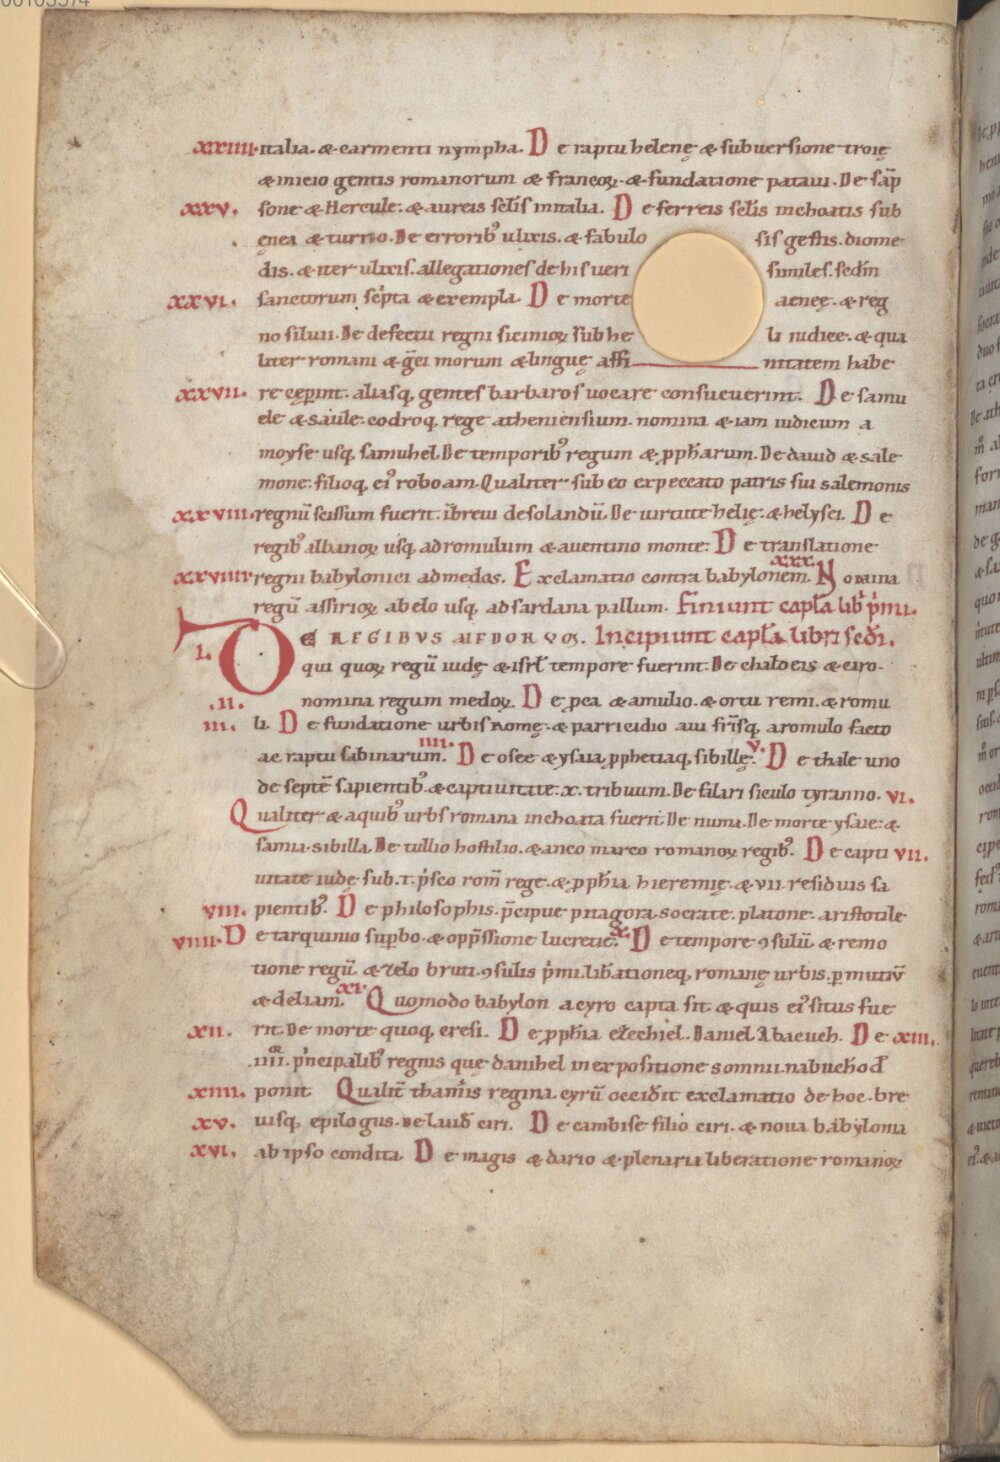 xxiiii. italia. & carmenti nympha. De raptu helenę & subuersione troię
& inicio gentis romanorum & francoꝝ. & fundatione pataui. De sāp
xxv. sone & Hercule. & aureis sc̄lis in italia. De ferreis sc̄lis inchoatis sub
ęnea & turno. De erroribꝰ ulixis. & fabulosis gestis. diome
dis. & iter ulixis. allegationes de his ueri similes. scd̄m
xxvi. sanctorum sc̄pta & exempla. De morte aeneę. & reg
no siluii. De defectu regni sicinioꝝ sub heli iudice. & qua
liter romani & grẹci morum & linguę affinitatem habe
xxvii. re cęp̄int. aliasq, gentes barbaros uocare consueuerint. De samu
ele & saule. codroq, rege atheniensium. nomina & iam iudicum a
moyse usq, samuhel De temporibꝰ regum & ꝓph̄arum. De dauid & sale
mone. filioq, eiꝰ roboam. Qualiter sub eo ex peccato patris sui salemonis
xxviii. regnū scissum fuerit. ī breui desolandū. De uirtute helię. & helysei. De
regibꝰ albanoꝝ usq, ad romulum & auentino monte. De translatione
xxviiii regni babylonici ad medas. Exclamatio contra babylonem. xxx. Nomina
regū assirioꝝ a belo usq, ad sardana pallum. Finiunt capl̄a lib̄ p̄mi.
I. DE REGIBVS MEDORVM. Incipiunt capl̄a libri sc̄di.
qui quoꝝ regū iudę & isrł tempore fuerint. De chaldeis & ciro.
.ii. nomina regum medoꝝ. De ꝓca & amulio. & ortu remi. & romu
iii. li. De fundatione urbis romę. & parricidio aui frīsq, a romulo facto
ac raptu sabinarum. iiii. De osee & ysaia, ꝓphetiaq, sibillę. v. De thale uno
de septē sapientibꝰ. & captiuitate. x. tribuum. De filari siculo tyranno. vi.
Qualiter & a quibꝰ urbs romana inchoata fuerit. De numa. De morte ysaie. &
samia. sibilla. De tullio hostilio. & anco marco romanoꝝ regibꝰ. De capti vii.
uitate iudę sub. t. p̄sco rom̄ rege. & ꝓph̄ia hieremię. & vii. residuis sa
viii. pientibꝰ. De philosophis. p̄cipue pitagora. socrate. platone. aristotile
viiii. De tarquinio sup̄bo. & opp̄ssione lucretię. x. De tempore ꝯsulū & remo
tione regū & zelo bruti. ꝯsulis p̄mi. lib̄ationeq, romanę urbis. ꝑ mutiū
& cleliam. xi. Quomodo babylon a cyro capta sit. & quis eiꝰ situs fue
xii. rit. De morte quoq, cresi. De ꝓph̄ia ezechiel. Daniel Abacuch. De xiii.
.iiii.or p̄ncipalibꝰ regnis que danihel in expositione somnii. nabuchođ
xiiii. ponit Qualit̄ tham̄is regina. cyrū occid̄it exclamatio de hoc. bre
xv. uisq, epilogus. De luid̄ ciri. De cambise filio ciri. & noua babylonia
xvi. ab ipso condita. De magis & dario & plenaria liberatione romanoꝝ